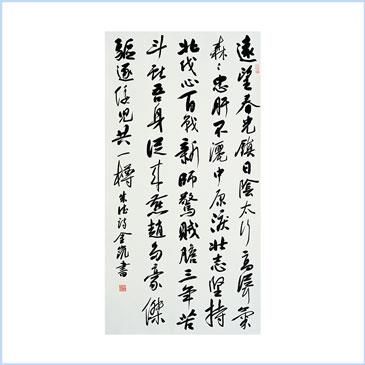 遠望春光鎮日陰太行高聳氣
森〻忠肝不灑中原淚壯志堅持
北伐心百戰新師驚賊膽三年苦
斗献吾身從来燕趙多豪傑
驅逐倭兒共一樽 朱德詩 金凱書